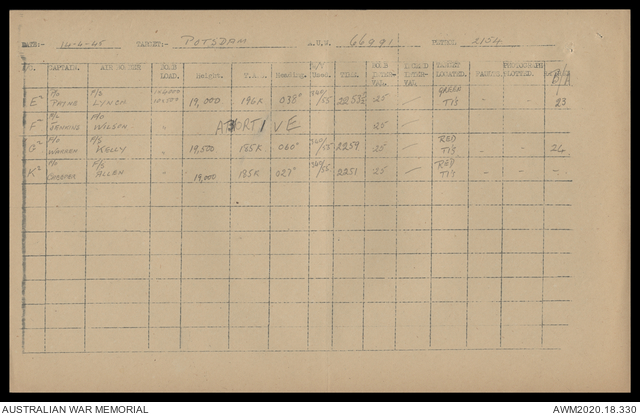 DATE:- 14-4-45 TARGET:- POTSDAM A.U.W. 66991 PETROL 2154
CAPTAIN. AIR BOMBER BOMB LOAD. Height. T.A.S. Heading. W/V Used. TIME. BOMB INTERVAL. TARGET LOCATED. PHOTOGRAPH PLOTTED. B/A
E2 P/O PAYNE F/O LYNCH 19,000 196K 038° 55 2253½ 25 - GREEN TI's - - 23
F2 P/O JENKINS WILSON " ABORTIVE 25 -
G2 P/O WARREN F/S KELLY " 19,500 185K 060° 55 2259 25 - RED TI's - - 26
K2 F/O F/S ALLEN " 19,000 185K 027° 55 2251 25 - RED TI's - - -
AUSTRALIAN WAR MEMORIAL AWM2020.18.330